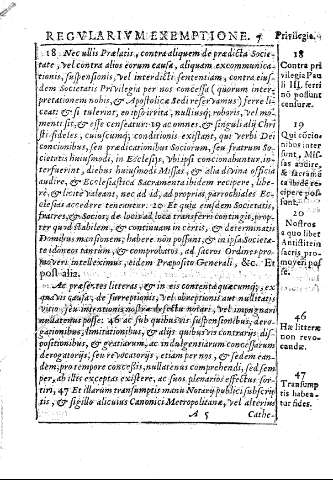 REGVLARIVM EXEMPTIONE. 9 Privilegia.
18 Nec ullis Prælatis, contra aliquem de prædicta Socie-
tate, vel contra alios eorum causa, aliquam excommunica-
tionis, suspensionis, vel interdicti sententiam, contra ejus-
dem Societatis Privilegia per nos concessa (quorum inter-
pretationem nobis, & Apostolicæ Sedi reservamus) ferre li-
ceat: & si tulerint, eo ipso irrita, nulliusq; roboris, vel mo-
menti sit, & esse censeatur: 19 ac omnes, & singuli alij Chri
sti-fideles, cuiuscumq; conditionis existant, qui verbi Dei
concionibus, seu prædicationibus Sociorum, seu fratrum So-
cietatis huiusmodi, in Ecclesijs, vbi ipsi concionabuntur, in-
terfuerint, diebus huiusmodi Missas, & alia divina officia
audire, & Ecclesiastica Sacramenta ibidem recipere, libe-
rè, & licitè valeant, nec ad id, ad proprias parrochiales Ec-
clesias accedere teneantur. 20 Et quia eiusdem Societatis,
fratres, & Socios, de loco ad loca transferri contingit, prop-
ter quod stabilem, & continuam in certis, & determinatis
Domibus mansionem, habere non possunt, & in ipsa Societa-
te idoneos tantùm, & comprobatos, ad sacros Ordines pro-
moveri intelleximus, eidem Præposito Generali, &c. Et
post alia.
Ac præsentes litteras, & in eis contenta quæcumq;, ex
quavis causa, de surreptionis, vel obreptionis aut nullitatis
vitio, seu intentionis nostræ defectu notari, vel impugnari
nullatenus posse: 46 ac sub quibusvis suspensionibus, dero-
gationibus, limitationibus, & alijs quibusvis contrarijs dis-
positionibus, & gratiarum, ac indulgentiarum concessarum
derogatorijs, seu revocatorijs, etiam per nos, & sedem ean-
dem, pro tempore concessis, nullatenus comprehendi, sed sem
per, ab illis exceptas existere, ac suos plenarios effectus sor-
tiri, 47 Et illarum transumptis manu Notarij publici subscrip
tis, & sigillo alicuius Canonici Metropolitanæ, vel alterius
A 5 Cathe-
18
Contra pri
vilegia Pau
li III. ferri
nō possunt
censuræ.
19
Qui cōcio-
nibus inter
sunt, Mis-
sas audire,
& sacramē
ta ibidē re-
cipere pos-
sunt.
20
Nostros
quolibet
Antistites
sacris pro-
moveri pos
se.
46
Hæ litteræ
non revo-
candæ.
47
Transump
tis habea-
tur fides.